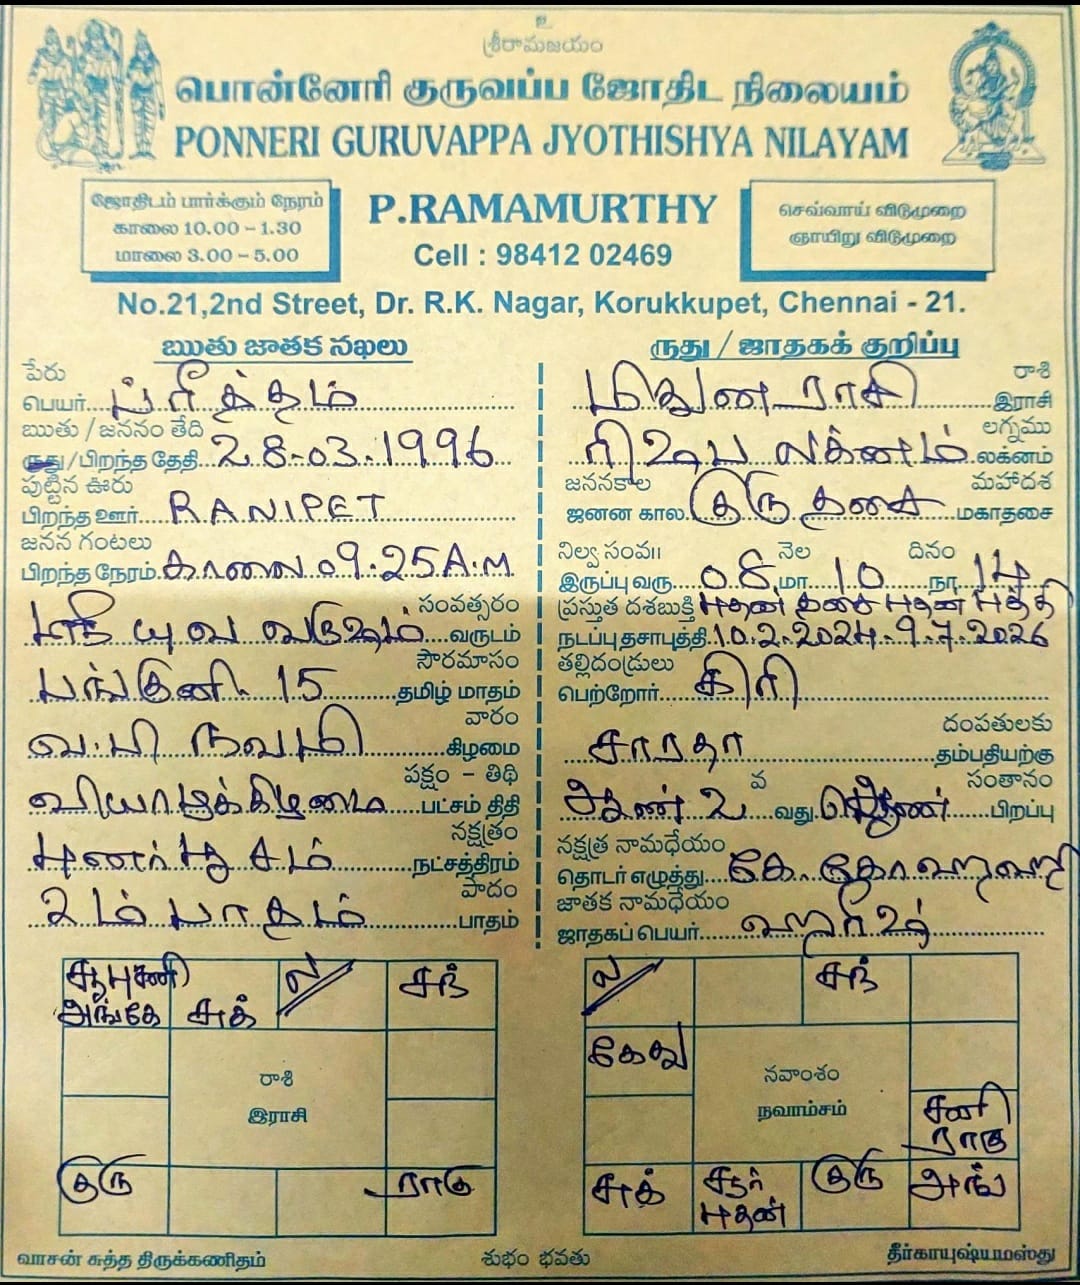 உ
ஸ்ரீராமஜயம்
பொன்னேரி குருவப்ப ஜோதிட நிலையம்
PONNERI GURUVAPPA JYOTHISHYA NILAYAM
ஜோதிடம் பார்க்கும் நேரம்
காலை 10.00 – 1.30
மாலை 3.00 – 5.00
P.RAMAMURTHY
Cell : 98412 02469
செவ்வாய் விடுமுறை
ஞாயிறு விடுமுறை
No.21,2nd Street, Dr. R.K. Nagar, Korukkupet, Chennai - 21.
஋து ஜாதக நகலு
పేరు
பெயர்... ப்ரீத்தம்
ఋతు / జననం తేది
ருது/பிறந்த தேதி.. 28-03-1996
పుట్టిన ఊరు
பிறந்த ஊர்.... RANIPET
జనన గంటలు
பிறந்த நேரம். காலை 09.25 A.M
సంవత్సరం
ஸ்ரீ யுவ வருஷம் வருடம்
సౌరమాసం
பங்குனி 15 தமிழ் மாதம்
వారం
வ.பி நவமி கிழமை
పక్షం - తిథి
வியாழக்கிழமை பட்சம் திதி
నక్షత్రం
புனர்பூசம் நட்சத்திரம்
పాదం
2ம் பாதம் பாதம்
ருது / ஜாதகக் குறிப்பு
రాశి
மிதுன ராசி இராசி
లగ్నము
ரிஷப லக்னம் லக்னம்
జననకాల మహాదశ
ஜனன கால குரு தசை மகாதசை
నిల్వ సంవ॥ నెల దినం
இருப்பு வரு. 08 மா. 10 நா. 14
ప్రస్తుత దశబుక్తి புதன் தசை புதன் புத்தி
நடப்பு தசாபுத்தி. 10.2.2024-9.7.2026
తల్లిదండ్రులు
பெற்றோர். கிரி
దంపతులకు
சாரதா தம்பதியற்கு
వ సంతానం
ஆண் 2 வது பிறப்பு
నక్షత్ర నామధేయం
தொடர் எழுத்து... கே.கோ ஹ ஹி
జాతక నామధేయం
ஜாதகப் பெயர்...
சூ புசனி
அங்கே
சுக்
ல
சந்
రాశి
இராசி
குரு
ராகு
ல
சந்
கேது
నవాంశం
நவாம்சம்
சனி
ராகு
சுக்
சூர்
புதன்
குரு
அங்
வாசன் சுத்த திருக்கணிதம்
శుభం భవతు
தீர்காயுஷ்யமஸ்து